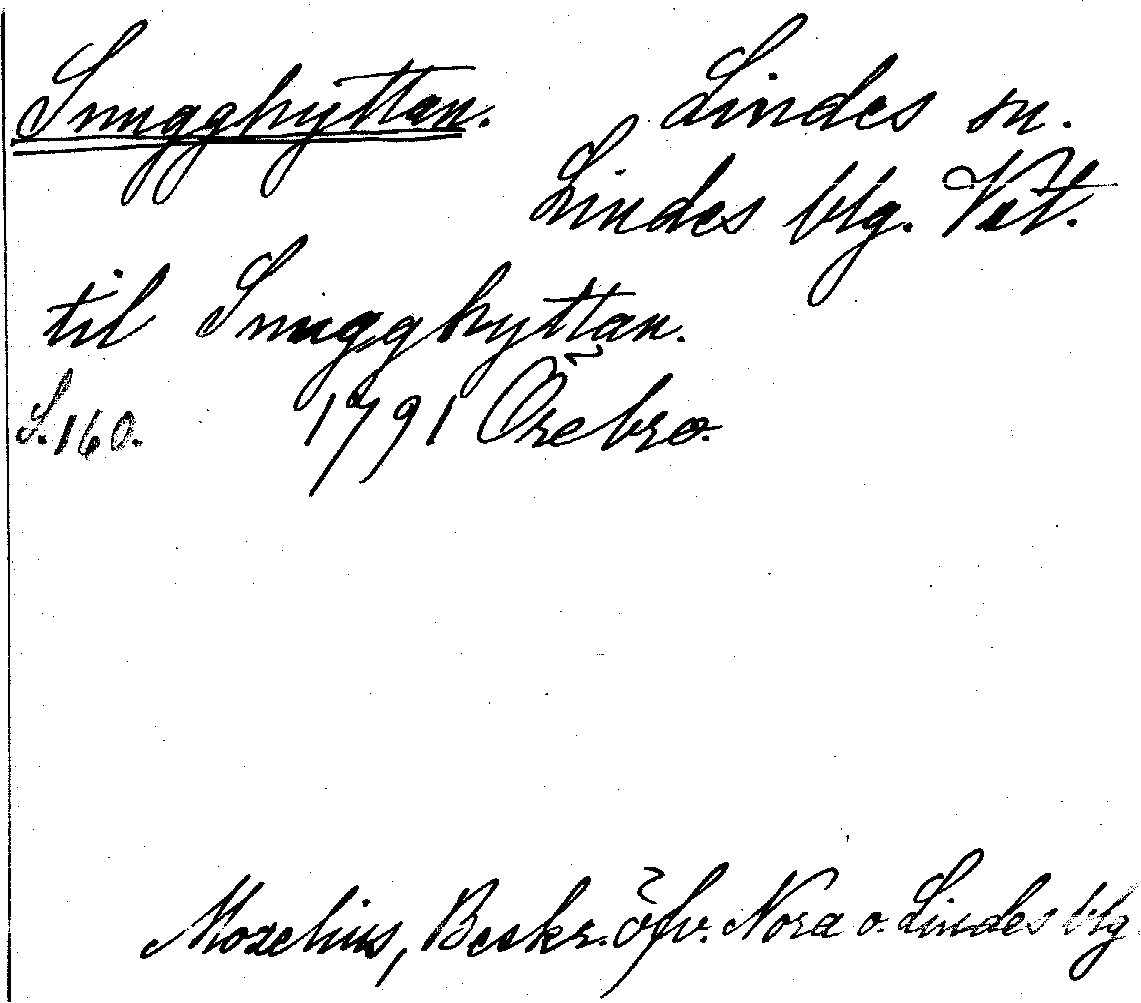 Snugghyttan. Lindes sn.
Lindes blg. Vst.
til Snugghyttan.
S. 160. 1791 Örebro.
Mozelius, Beskr. öfv. Nora o. Lindes blg